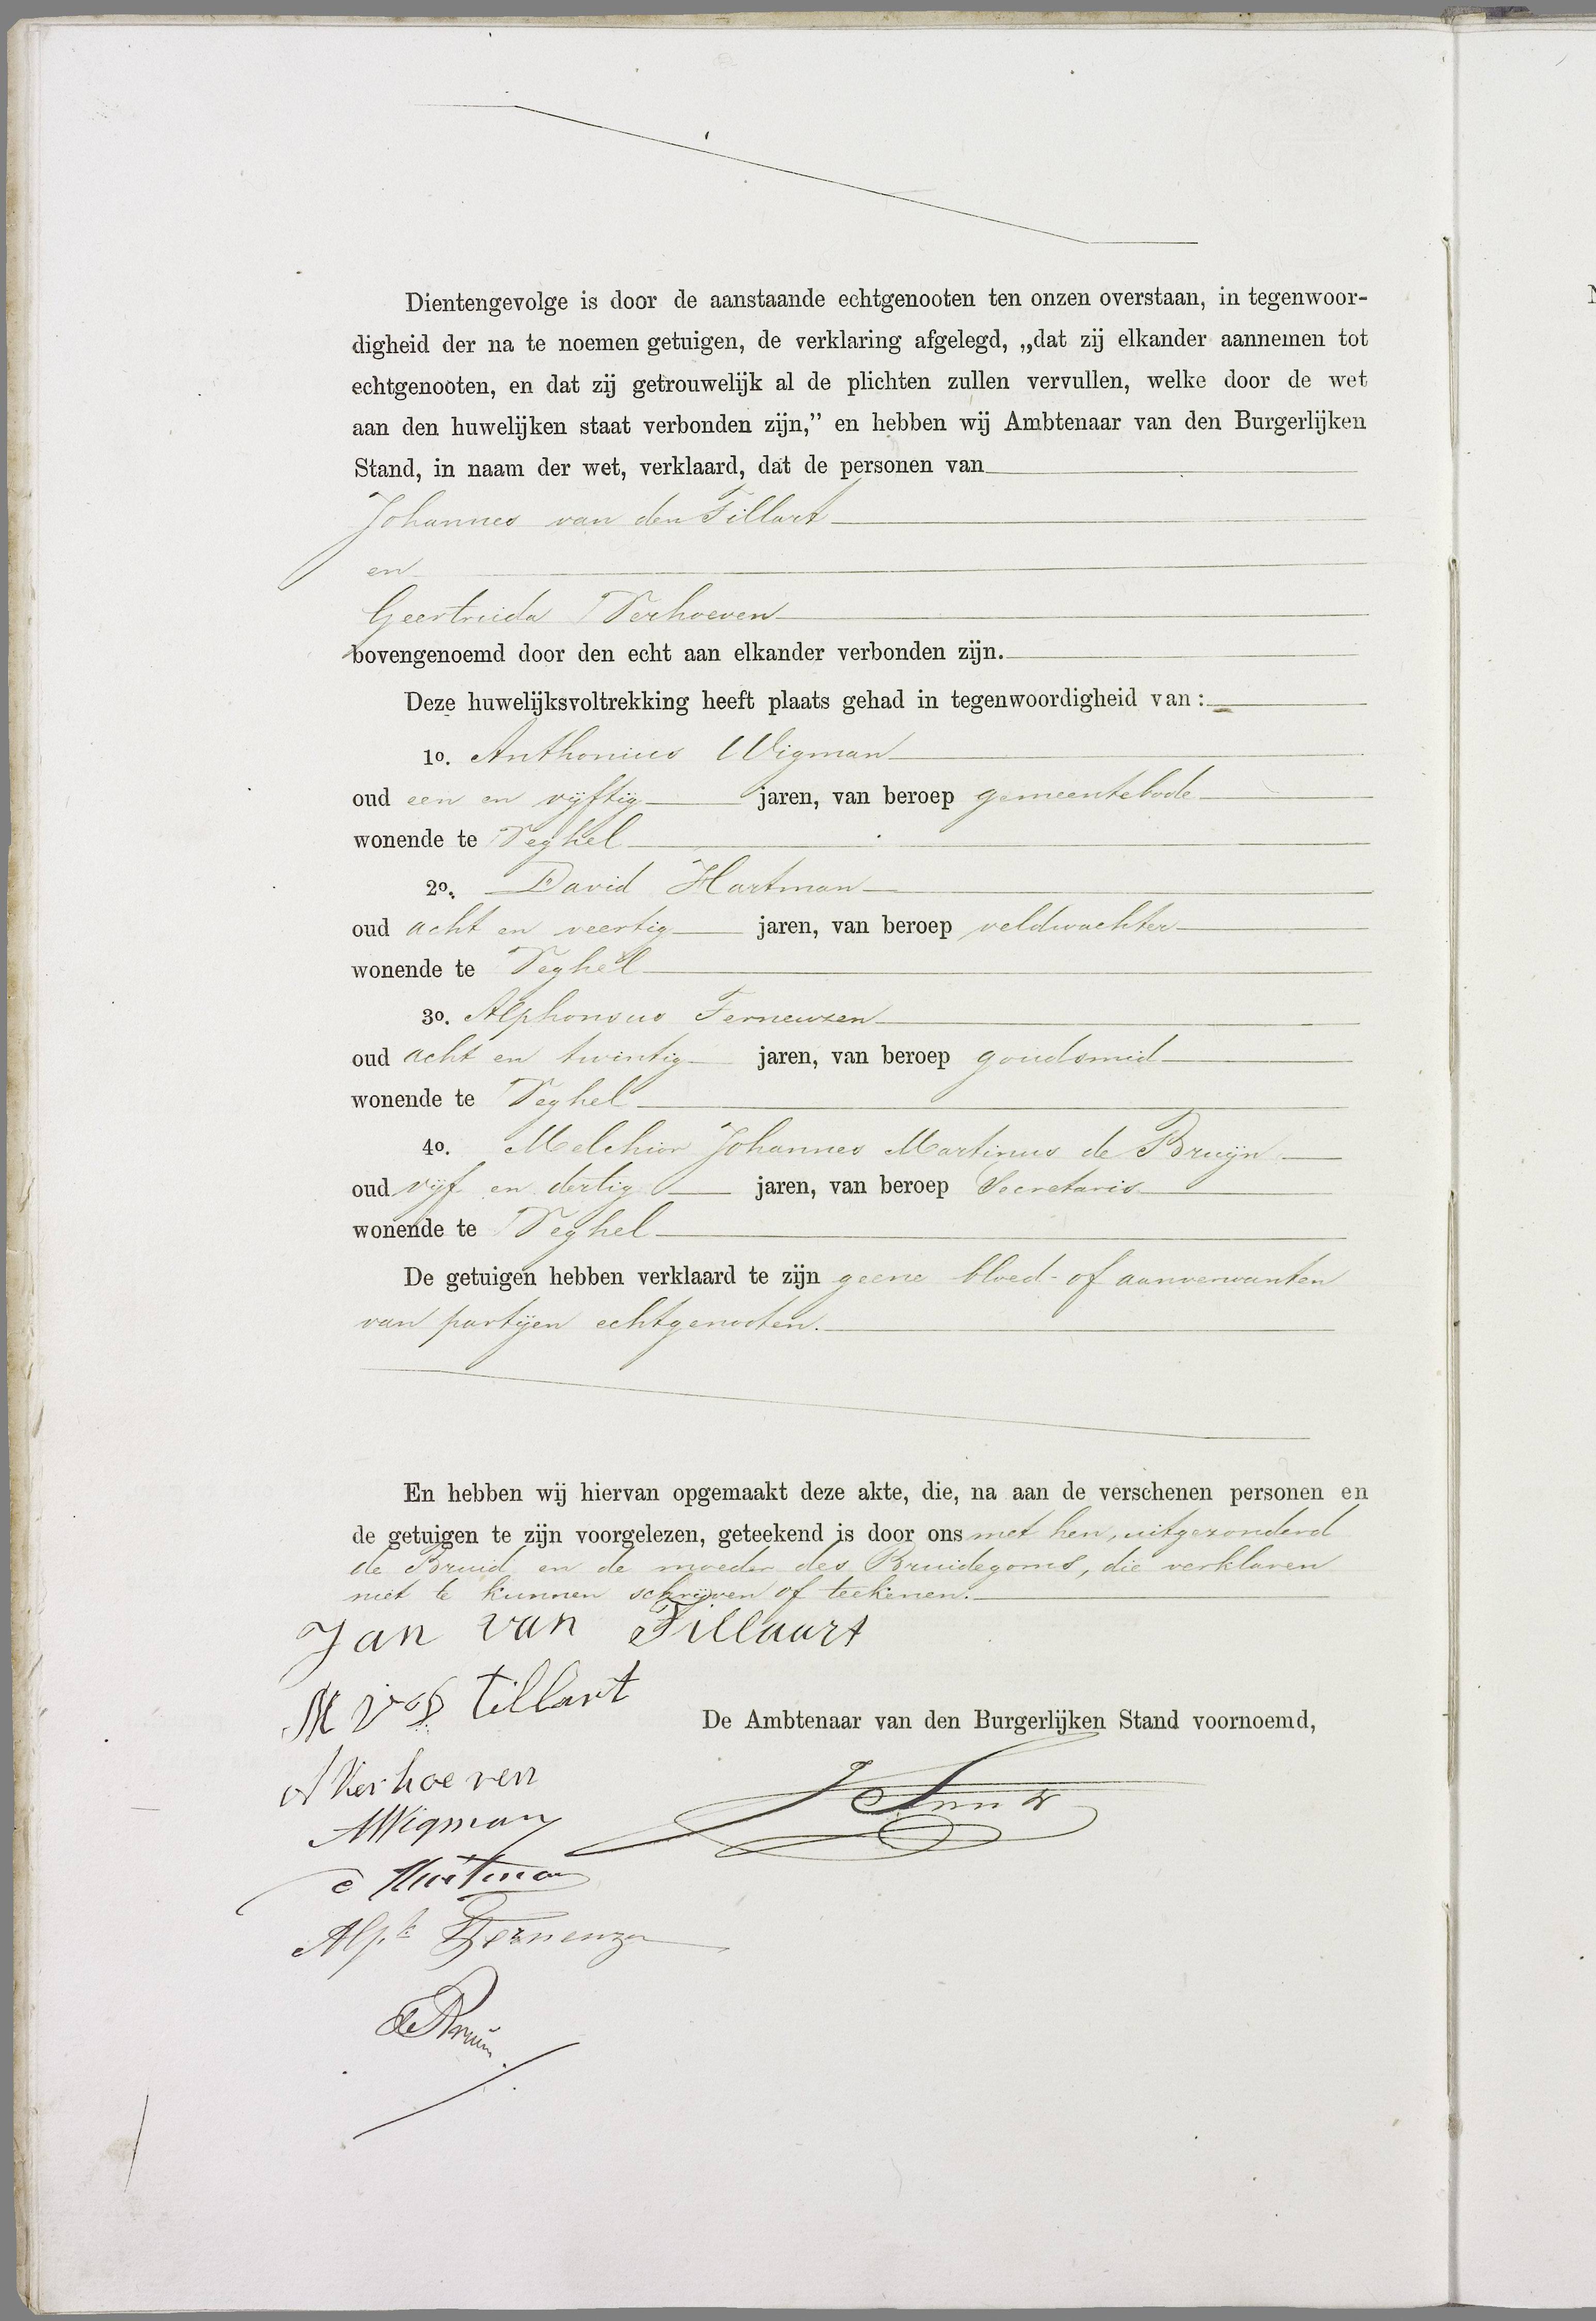 Dientengevolge is door de aanstaande echtgenooten ten onzen overstaan, in tegenwoor-
digheid der na te noemen getuigen, de verklaring afgelegd, „dat zij elkander aannemen tot
echtgenooten, en dat zij getrouwelijk al de plichten zullen vervullen, welke door de wet
aan den huwelijken staat verbonden zijn,” en hebben wij Ambtenaar van den Burgerlijken
Stand, in naam der wet, verklaard, dat de personen van
Johannes van den Tillart
en
Geertruida Verhoeven
bovengenoemd door den echt aan elkander verbonden zijn.
Deze huwelijksvoltrekking heeft plaats gehad in tegenwoordigheid van :
1o. Anthonius Wigman
oud een en vijftig jaren, van beroep gemeentebode
wonende te Veghel
2o. David Hartman
oud acht en veertig jaren, van beroep veldwachter
wonende te Veghel
3o. Alphonsus Ferneuzen
oud acht en twintig jaren, van beroep goudsmid
wonende te Veghel
4o. Melchior Johannes Martinus de Bruijn
oud vijf en dertig jaren, van beroep Secretaris
wonende te Veghel
De getuigen hebben verklaard te zijn geene bloed- of aanverwanten
van partijen echtgenooten.
En hebben wij hiervan opgemaakt deze akte, die, na aan de verschenen personen en
de getuigen te zijn voorgelezen, geteekend is door ons met hen, uitgezonderd
de Bruid en de moeder des Bruidegoms, die verklaren
niet te kunnen schrijven of teekenen.
Jan van Tillaart
M v d tillart
De Ambtenaar van den Burgerlijken Stand voornoemd,
A Verhoeven
AWigman
d Hartman
Alph Ferneuzen
de Bruijn